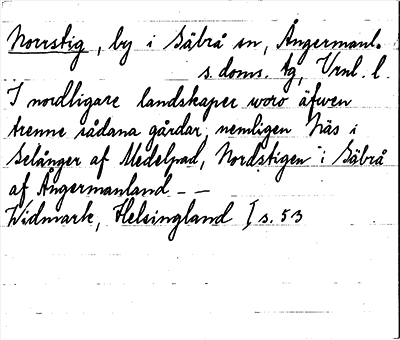 Norrstig, by i Säbrå sn, Ångermanl.
s. doms. tg, Vrnl. l.
I nordligare landskaper woro äfwen
trenne sådana gårdar, nemligen Näs i
Selånger af Medelpad, "Nordstigen" i Säbrå
af Ångermanland — —
Widmark, Helsingland I s. 53